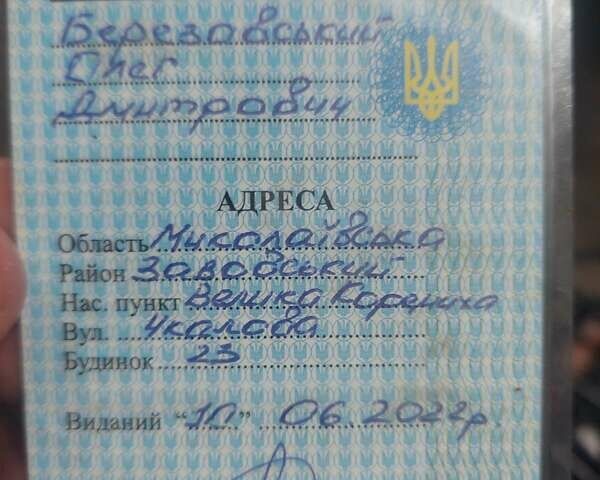 Березавський
Олег
Дмитрович
АДРЕСА
Область Миколаївська
Район Заводський
Нас. пункт Велика Корениха
Вул. Чкалова
Будинок 23
Виданий " " 06 2022р